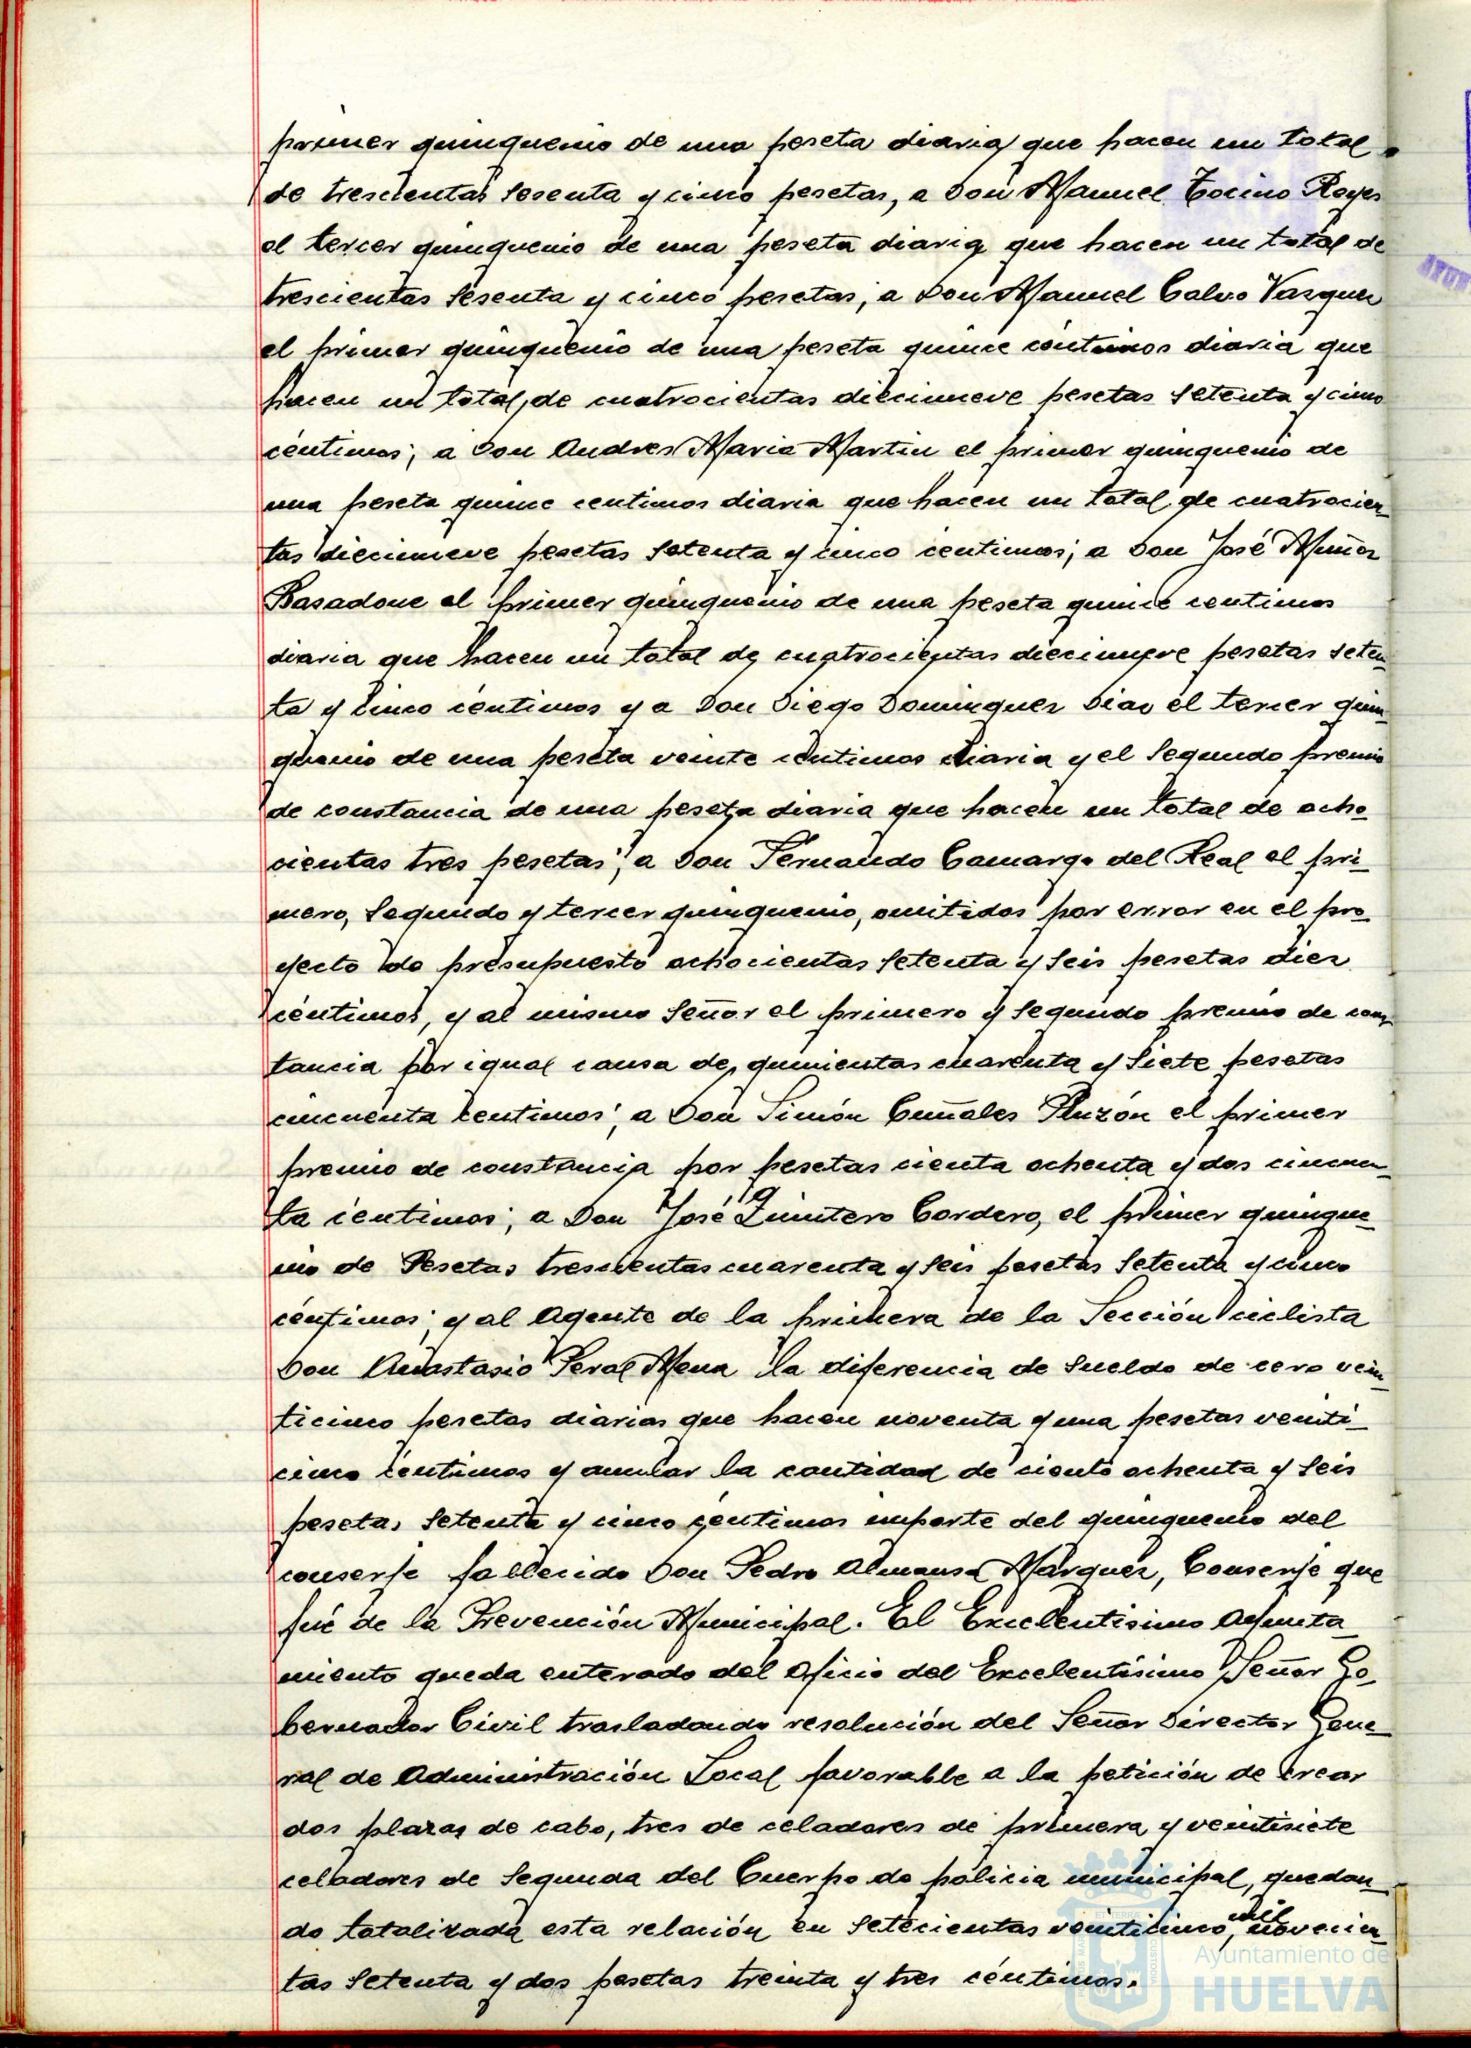 primer quinquenio de una peseta diaria que hacen un total
de trescientas sesenta y cinco pesetas, a Don Manuel Tocino Reyes
el tercer quinquenio de una peseta diaria que hacen un total de
trescientas sesenta y cinco pesetas; a Don Manuel Calvo Vazquez
el primer quinquenio de una peseta quince céntimos diaria que
hacen un total, de cuatrocientas diecinueve pesetas setenta y cinco
céntimos; a Don Andres Maria Martin el primer quinquenio de
una peseta quince centimos diaria que hacen un total de cuatrocien-
tas diecinueve pesetas setenta y cinco centimos; a Don José Muñoz
Basadone el primer quinquenio de una peseta quince centimos
diaria que hacen un total de cuatrocientas diecinueve pesetas seten-
ta y cinco céntimos y a Don Diego Dominguez Diaz el tercer quin-
quenio de una peseta veinte centimos diaria y el segundo premio
de constancia de una peseta diaria que hacen un total de ocho-
cientas tres pesetas; a Don Fernando Camargo del Real el pri-
mero, segundo y tercer quinquenio, omitidos por error en el pro-
yecto de presupuesto ochocientas setenta y seis pesetas diez
céntimos, y al mismo señor el primero y segundo premio de cons-
tancia por igual causa de quinientas cuarenta y siete pesetas
cincuenta centimos; a Don Simón Cumales Pinzón el primer
premio de constancia por pesetas cienta ochenta y dos cincuen-
ta céntimos; a Don José Quintero Cordero, el primer quinque-
nio de Pesetas trescientas cuarenta y seis pesetas setenta y cinco
céntimos; y al Agente de la primera de la Sección ciclista
Don Anastasio Peral Mena la diferencia de sueldo de cero vein-
ticinco pesetas diarias que hacen noventa y una pesetas veinti-
cinco céntimos y anular la cantidad de ciento ochenta y seis
pesetas setenta y cinco céntimos importe del quinquenio del
conserje fallecido Don Pedro Almansa Marquez, Conserje que
fué de la Prevención Municipal. El Excelentisimo Ayunta-
miento queda enterado del Oficio del Excelentísimo Señor Go-
bernador Civil trasladando resolución del Señor Director Gene-
ral de Administración Local favorable a la petición de crear
dos plazas de cabo, tres de celadores de primera y veintisiete
celadores de segunda del Cuerpo de policia municipal, quedan-
do totalizada esta relación en setecientas veinticinco mil novecien-
tas setenta y dos pesetas treinta y tres céntimos.
Ayuntamiento de
HUELVA